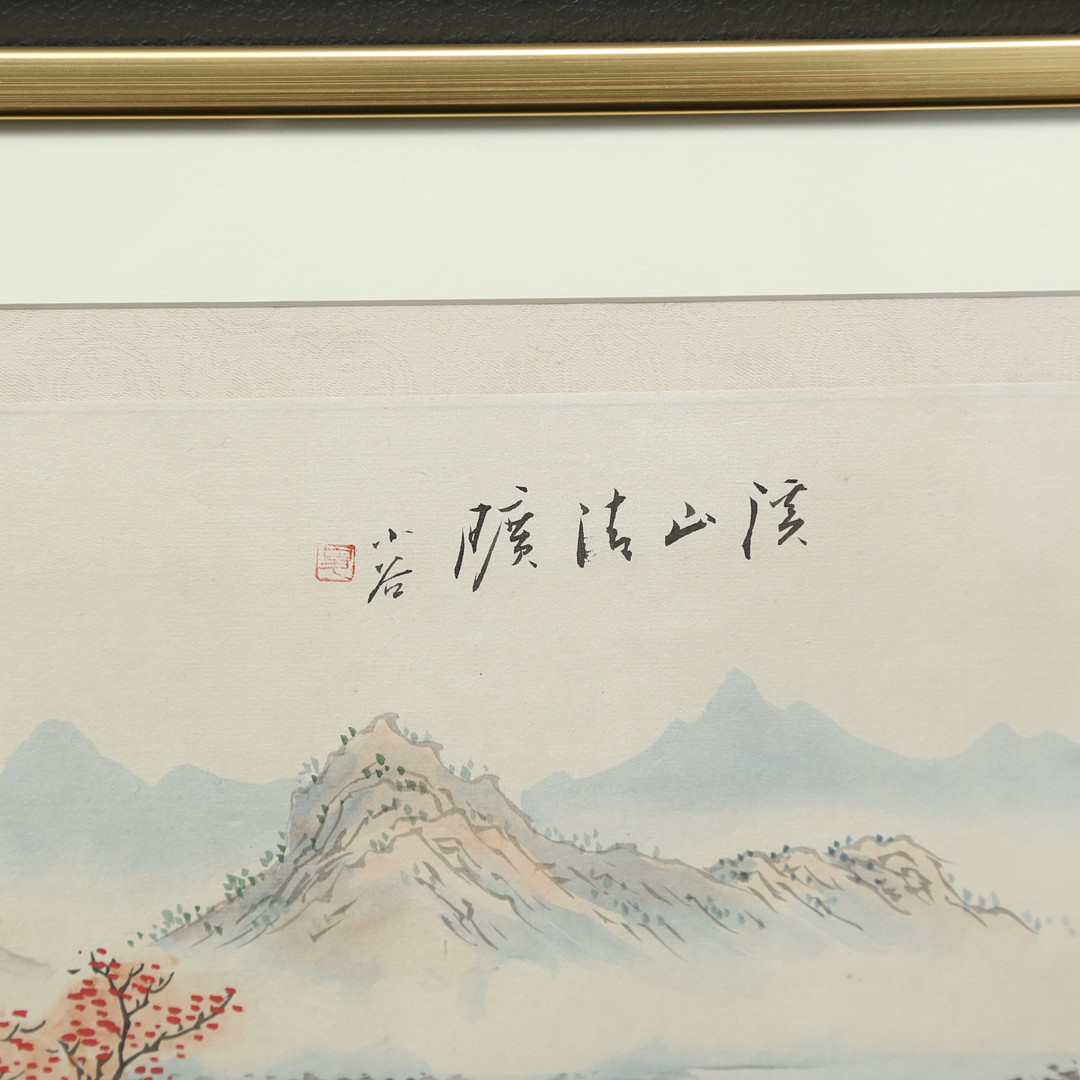 溪山清曠
小谷